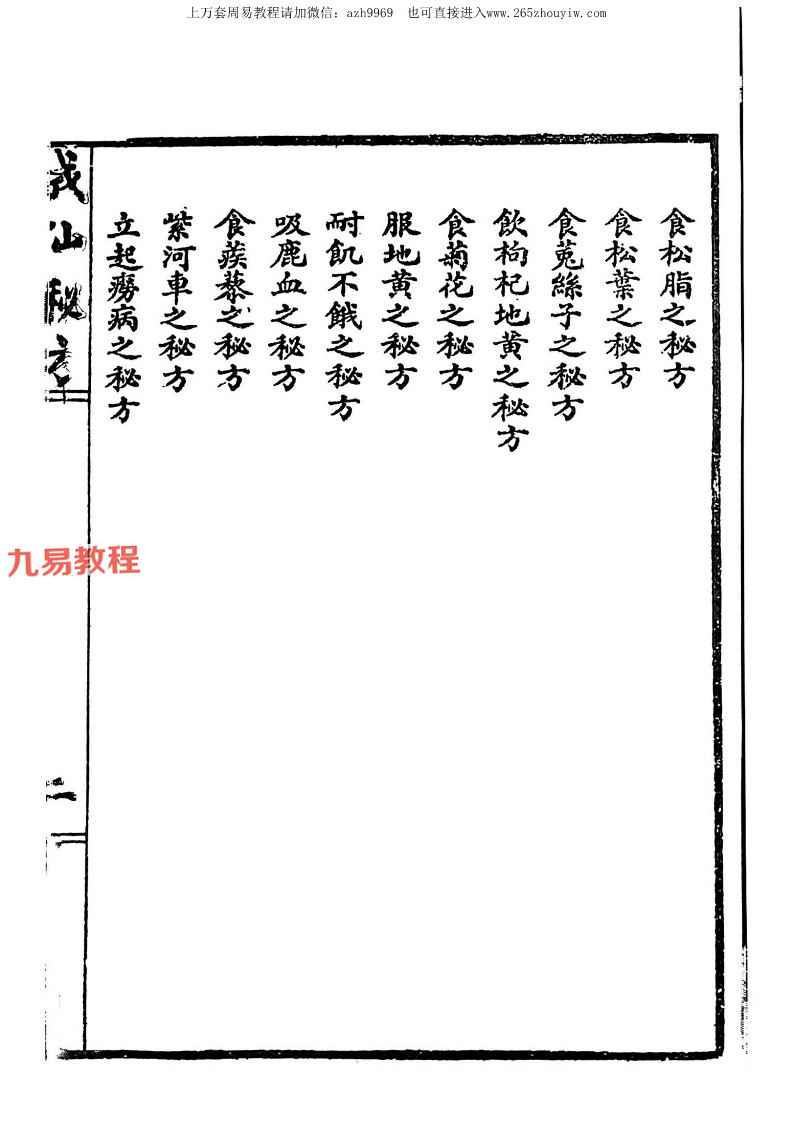 上万套周易教程请加微信：azh9969　也可直接进入www.265zhouyiw.com
食松脂之秘方
食松葉之秘方
食菟絲子之秘方
飲枸杞地黄之秘方
食菊花之秘方
服地黄之秘方
耐飢不餓之秘方
吸鹿血之秘方
食蒺藜之秘方
紫河車之秘方
立起癆病之秘方
成仙秘方
二
九易教程